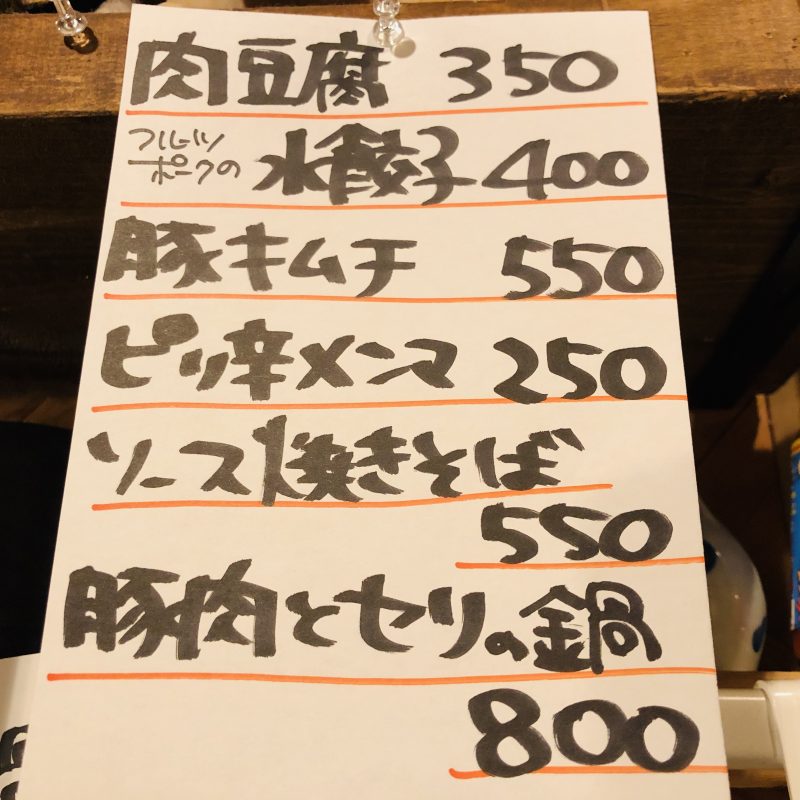 肉豆腐 350
フルーツポークの 水餃子 400
豚キムチ 550
ピリ辛メンマ 250
ソース焼きそば
550
豚肉とセリの鍋
800